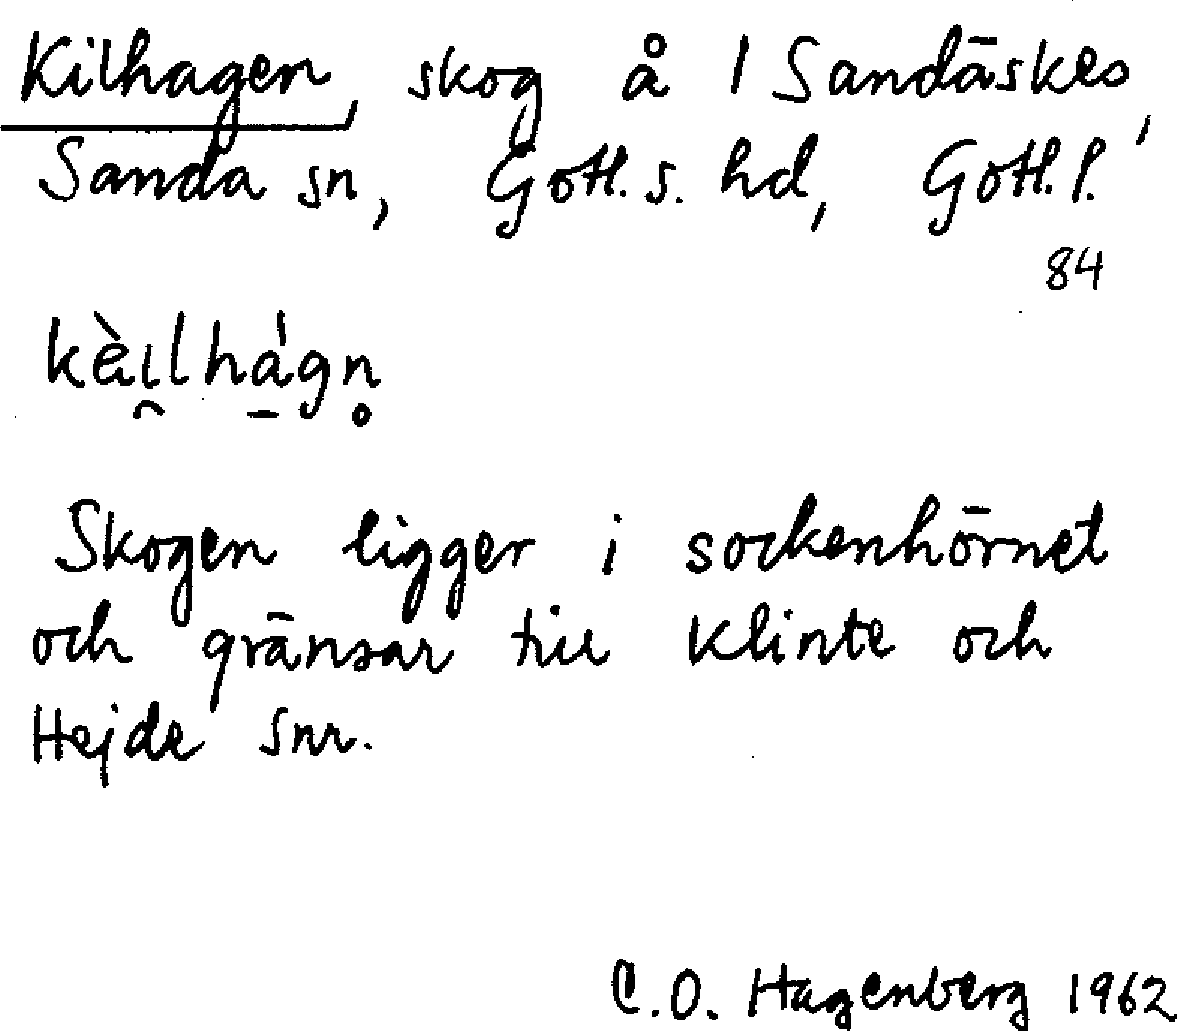 Kilhagen, skog å 1 Sandäskes,
Sanda sn, Gotl. s. hd, Gotl. l.
84
kὲi̯lhág̱n̥
Skogen ligger i sockenhörnet
och gränsar till Klinte och
Hejde snr.
C.O. Hagenberg 1962